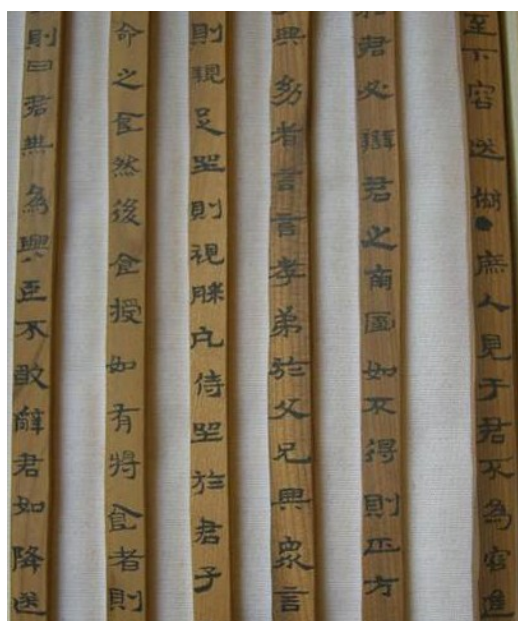 至下容送●庶人見于君不為容進
君必辯君之南面如不得則正方
與幼者言言孝弟於父兄與衆言
則視足坐則視膝凡侍坐於君子
命之食然後食授如有將食者則
則曰君無為興臣不敢辭君如降送